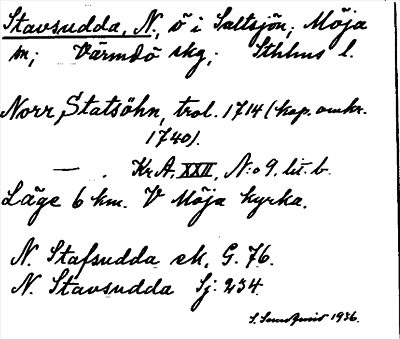 Stavsudda, N., ö i Saltsjön; Möja
sn; Värmdö skg; Sthlms l.
Norr Statsöhn, trol. 1714 (kop. omkr.
1740).
— . KrA, XXII, N:o 9, lit. b.
Läge 6 km. V Möja kyrka.
N. Stafsudda ek. G. 76.
N. Stavsudda Sj: 234
S. 1936.